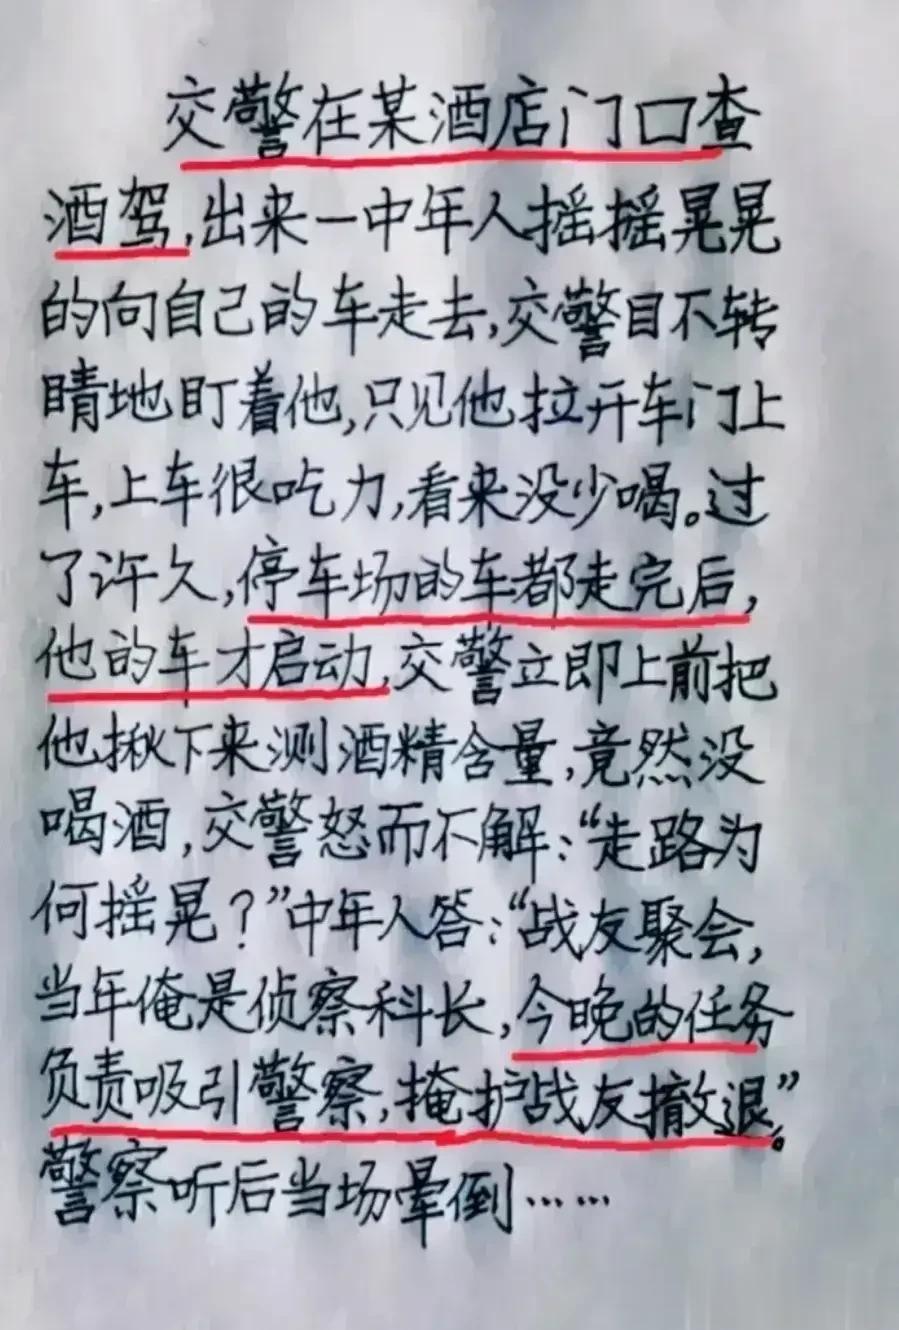 交警在某酒店门口查
酒驾,出来一中年人摇摇晃晃
的向自己的车走去,交警目不转
睛地盯着他,只见他拉开车门上
车,上车很吃力,看来没少喝。过
了许久,停车场的车都走完后,
他的车才启动,交警立即上前把
他揪下来测酒精含量,竟然没
喝酒,交警怒而不解:“走路为
何摇晃?”中年人答:“战友聚会,
当年俺是侦察科长,今晚的任务
负责吸引警察,掩护战友撤退”。
警察听后当场晕倒……